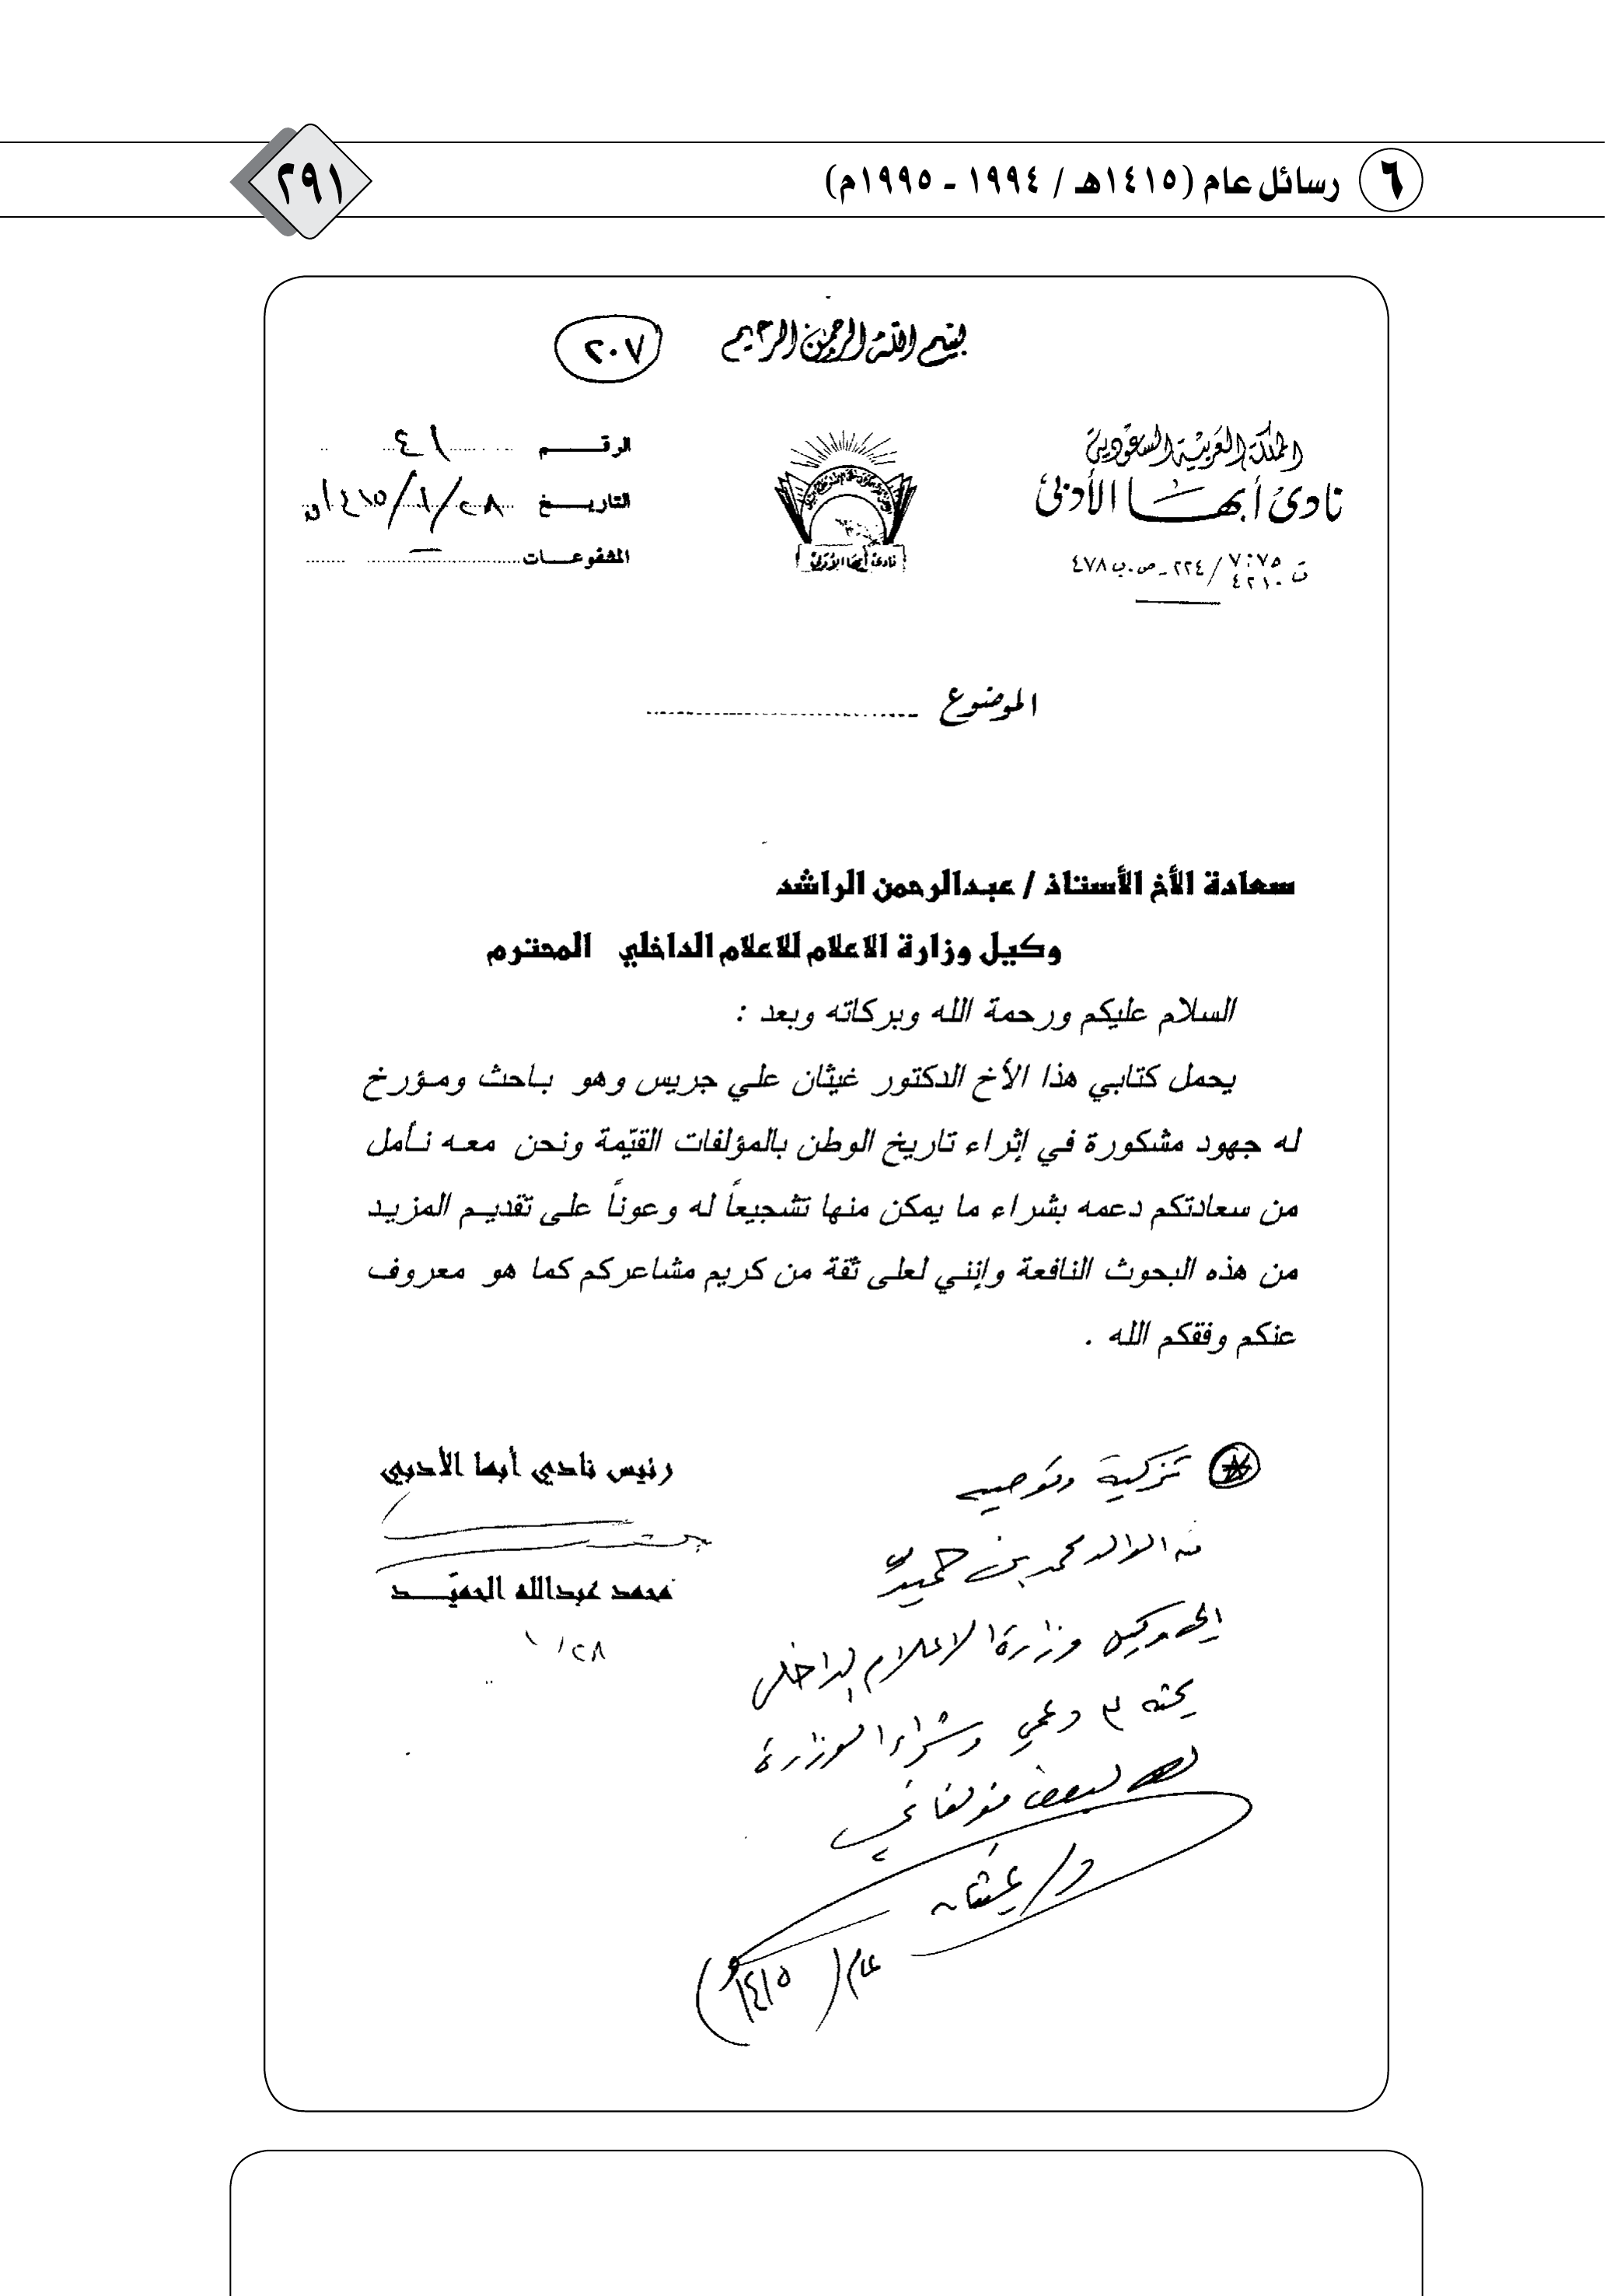 ٦ رسائل عام (١٤١٥هـ / ١٩٩٤ - ١٩٩٥م)
٢٩١
بسم الله الرحمن الرحيم
٢٠٧
المملكة العربية السعودية
نادى أبها الأدبى
ت ٧٠٧٥ / ٢٢٤ ـ ص.ب ٤٧٨
٤٢١٠
نادى أبها الأدبى
الرقـــــم ٤١
التاريـــخ ٢٨/١/١٤١٥هـ
المشفوعـــات
الموضوع
سعادة الأخ الأستاذ / عبدالرحمن الراشد
وكيل وزارة الاعلام للاعلام الداخلي المحترم
السلام عليكم ورحمة الله وبركاته وبعد :
يحمل كتابي هذا الأخ الدكتور غيثان علي جريس وهو باحث ومؤرخ
له جهود مشكورة في إثراء تاريخ الوطن بالمؤلفات القيّمة ونحن معه نأمل
من سعادتكم دعمه بشراء ما يمكن منها تشجيعاً له وعوناً على تقديم المزيد
من هذه البحوث النافعة وإنني لعلى ثقة من كريم مشاعركم كما هو معروف
عنكم وفقكم الله .
رئيس نادي أبها الأدبي
محمد عبدالله الحميّـــد
٢٨/١
تزكية وتوصيه
من الوالد محمد بن حميد
إلى وكيل وزارة الاعلام الداخلي
يحثه في دعمي وشراء الوزارة
لبعض مؤلفاتي
د/ غيثان
عام (١٤١٥)